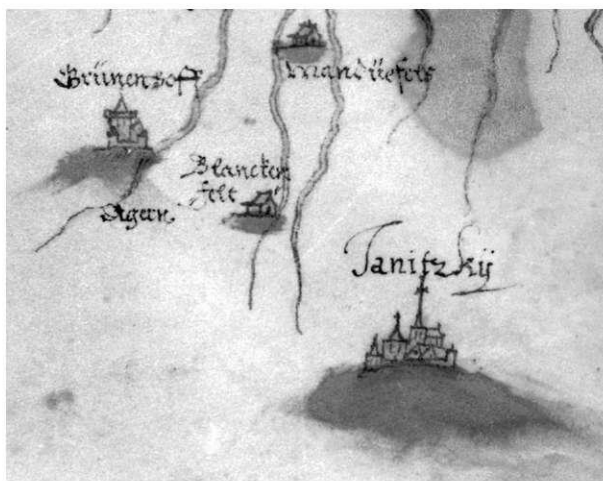 Grünenhoff
Manduefels
Blancken
felt
Agern
Janitzkÿ